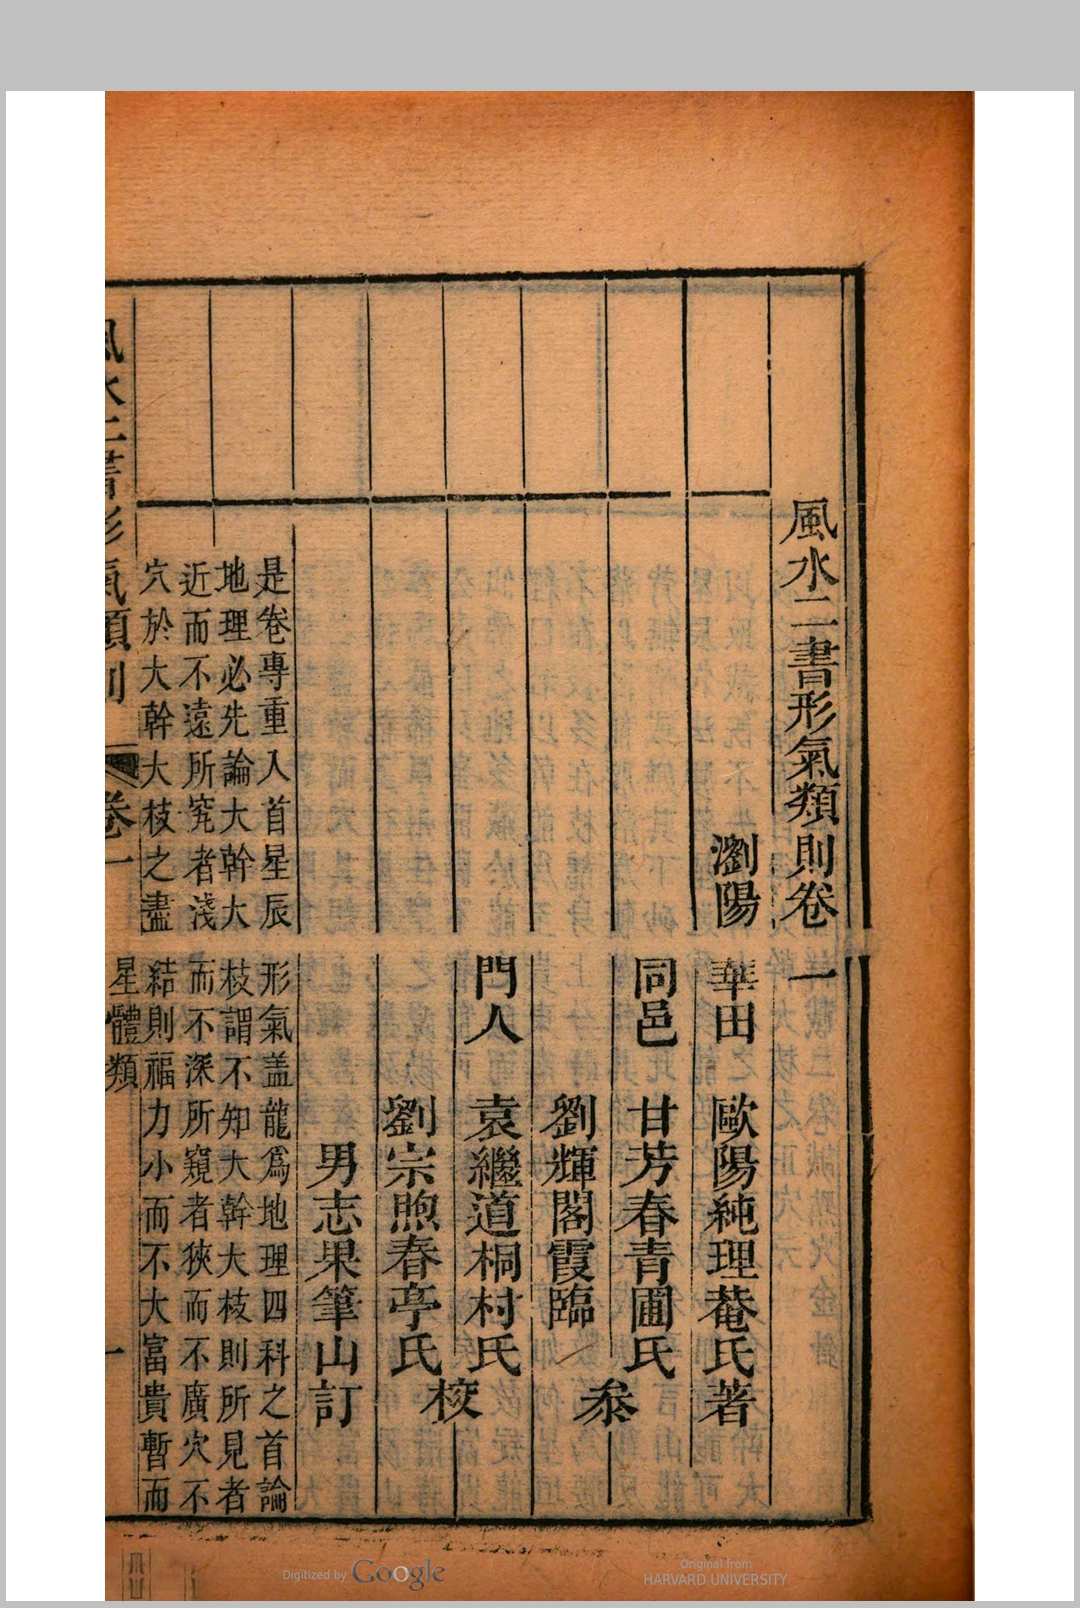 風水二書形氣類則卷一
瀏陽 華田 歐陽純理菴氏著
同邑 甘芳春青圃氏
劉輝閣霞臨
叅
門人 袁繼道桐村氏
劉宗煦春亭氏
校
男志果筆山訂
是卷專重入首星辰形氣盖龍爲地理四科之首論
地理必先論大幹大枝謂不知大幹大枝則所見者
近而不遠所究者淺而不深所窺者狹而不廣穴不
穴於大幹大枝之盡結則福力小而不大富貴暫而
風水二書形氣類則 卷一 星體類 一
Digitized by Google
Original from
HARVARD UNIVERSITY